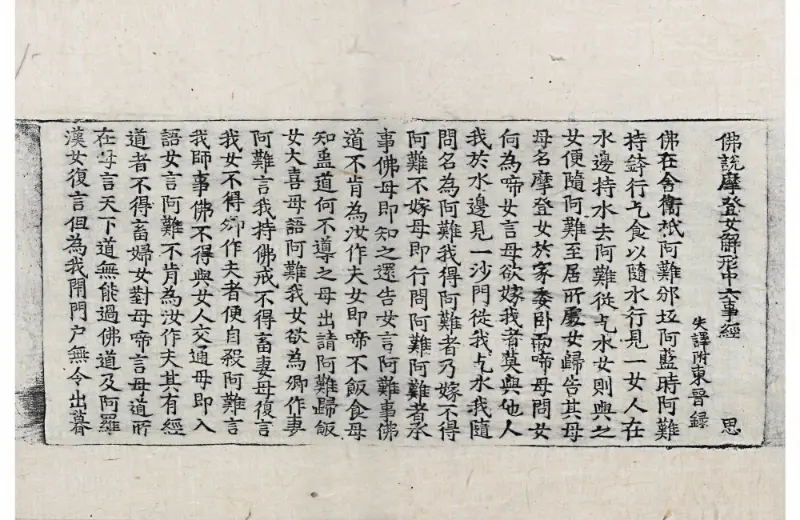 佛說摩登女解形中六事經 思
失譯附東晉録
佛在舍衛祇阿難邠坻阿藍時阿難
持鉢行乞食以隨水行見一女人在
水邊持水去阿難從乞水女則與之
女便隨阿難至居所處女歸告其母
母名摩登女於家委卧而啼母問女
何為啼女言母欲嫁我者莫與他人
我於水邊見一沙門從我乞水我隨
問名為阿難我得阿難者乃嫁不得
阿難不嫁母即行問阿難阿難者承
事佛母即知之還告女言阿難事佛
道不肯為汝作夫女即啼不飯食母
知蠱道何不導之母出請阿難歸飯
女大喜母語阿難我女欲為卿作妻
阿難言我持佛戒不得畜妻母復言
我女不得卿作夫者便自殺阿難言
我師事佛不得與女人交通母即入
語女言阿難不肯為汝作夫其有經
道者不得畜婦女對母啼言母道所
在母言天下道無能過佛道及阿羅
漢女復言但為我閉門户無令出暮